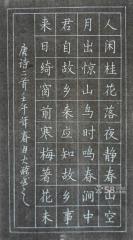 人闲桂花落夜静春山空
月出惊山鸟时鸣春涧中
君自故乡来应知故乡事
来日绮窗前寒梅著花未
唐诗二首壬午年春日